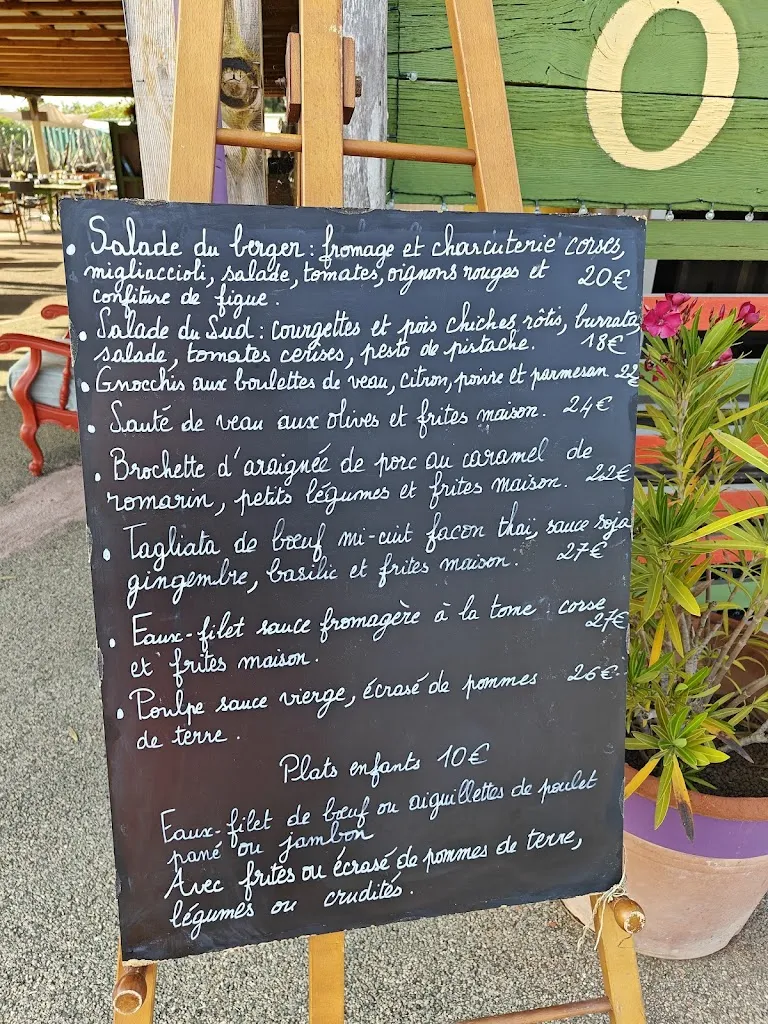 O
• Salade du berger : fromage et charcuterie corses,
migliaccioli, salade, tomates, oignons rouges et 20€
confiture de figue.
• Salade du Sud : courgettes et pois chiches rôtis, burrata,
salade, tomates cerises, pesto de pistache. 18€
• Gnocchis aux boulettes de veau, citron, poivre et parmesan 22€
• Sauté de veau aux olives et frites maison. 24€
• Brochette d'araignée de porc au caramel de
romarin, petits légumes et frites maison. 22€
• Tagliata de bœuf mi-cuit façon thai, sauce soja
gingembre, basilic et frites maison. 27€
• Faux-filet sauce fromagère à la tome corse
et frites maison. 27€
• Poulpe sauce vierge, écrasé de pommes 26€.
de terre.
Plats enfants 10€
Faux-filet de bœuf ou aiguillettes de poulet
pané ou jambon
Avec frites ou écrasé de pommes de terre,
légumes ou crudités.